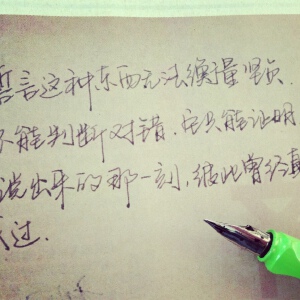 誓言这种东西无法衡量坚贞,
不能判断对错.它只能证明
说出来的那一刻,彼此曾经真
过.